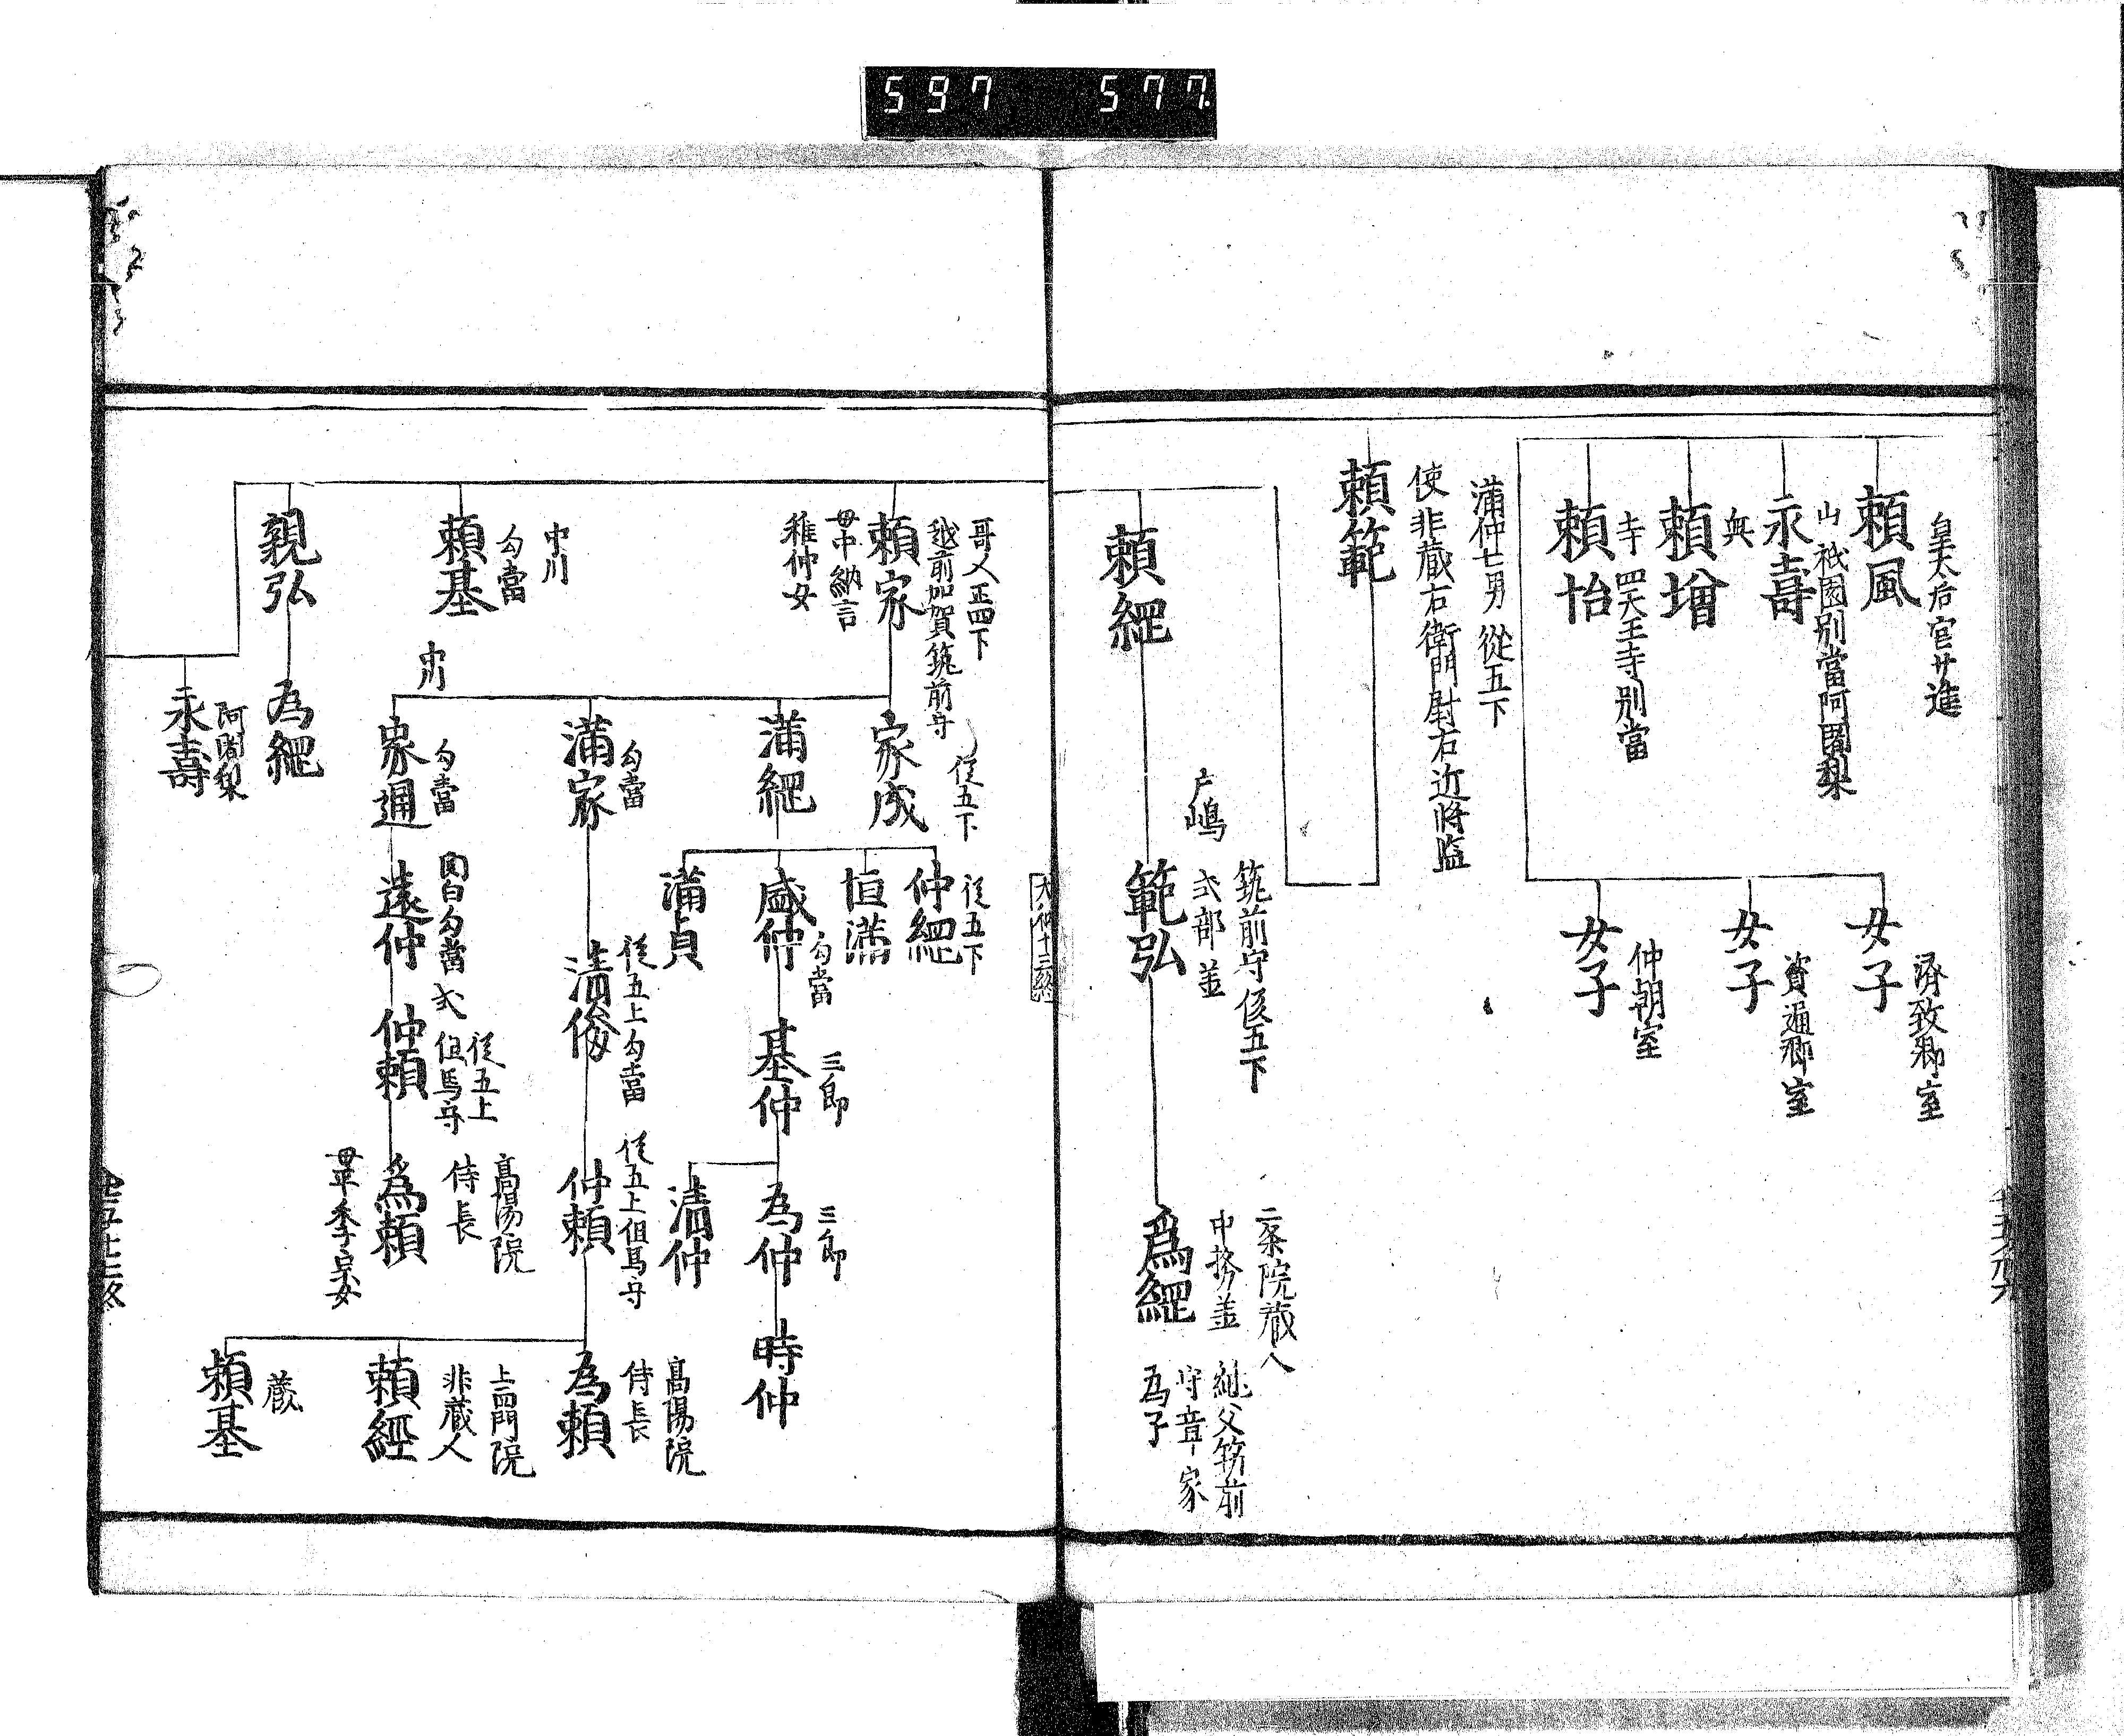 597 577.
皇太后宮廿進
頼風
山 祇園別當阿闍梨
永壽
與
頼増
寺 四天王寺別當
頼怡
濟致卿室
女子
資通卿室
女子
仲朝室
女子
満仲七男 從五下
使非蔵右衛門尉右近将監
頼範
頼經
筑前守従五下
式部並
戸嶋
範弘
二条院蔵人
中務並
爲經
継父筑前
守章家
為子
大系十三終
哥人正四下
越前加賀筑前守
頼家
母中納言
稚仲女
中川
勾當
頼基
親弘
為經
阿闍梨
永壽
従五下
家成
満經
勾當
満家
中川
勾當
家通
従五下
仲經
恒満
盛仲
勾當
満貞
三郎
基仲
三郎
為仲
清仲
時仲
従五上勾當
清俊
従五上但馬守
仲頼
高陽院
侍長
為頼
上西門院
非蔵人
頼經
蔵
頼基
関白勾當
遠仲
従五上
式 但馬守
仲頼
高陽院
侍長
爲頼